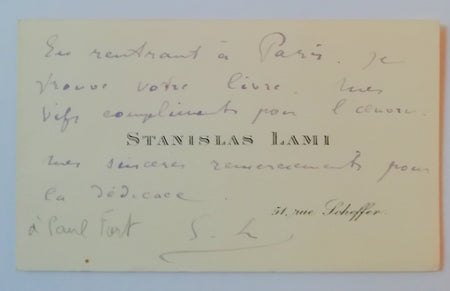 En rentrant à Paris. Je
trouve votre livre. mes
vifs compliments pour l'œuvre.
STANISLAS LAMI
mes sincères remerciements pour
la dédicace.
51, rue Scheffer.
à Paul Fort S. L